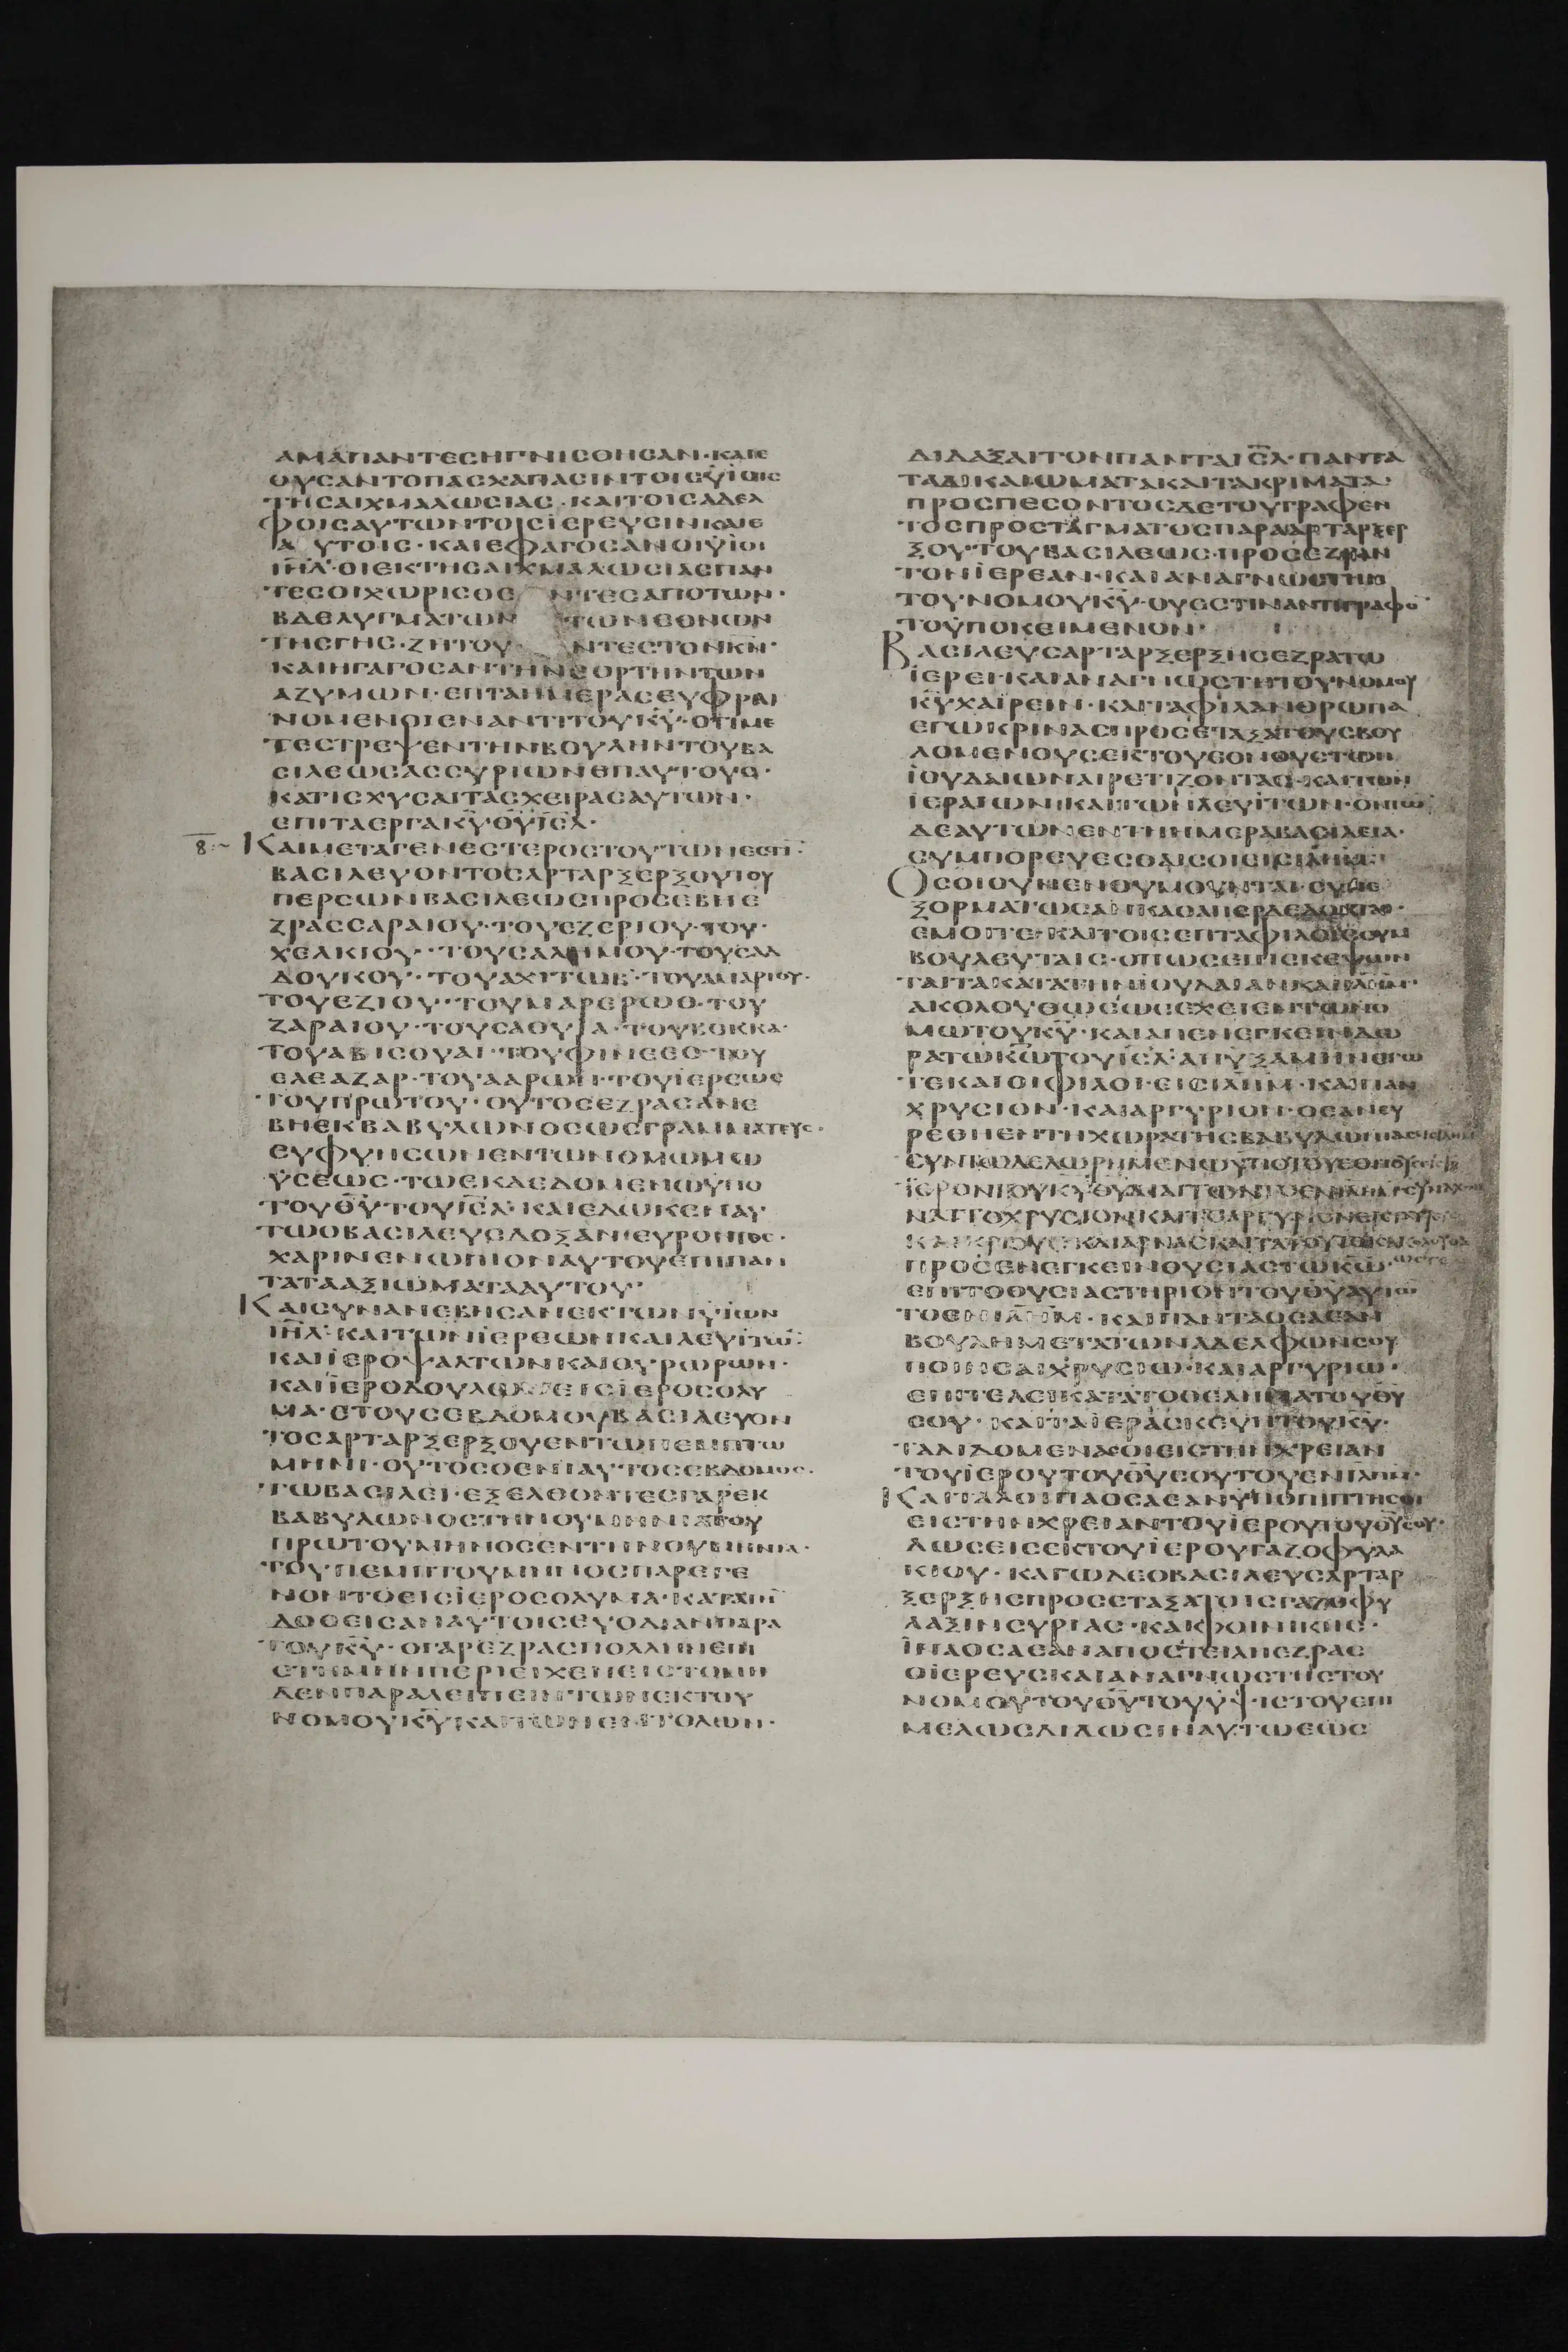 ΑΜΑΠΑΝΤΕΣΗΓΝΙΣΘΗΣΑΝ·ΚΑΙΕ
ΘΥΣΑΝΤΟΠΑΣΧΑΠΑΣΙΝΤΟΙΣΥΪΟΙΣ
ΤΗΣΑΙΧΜΑΛΩΣΙΑΣ·ΚΑΙΤΟΙΣΑΔΕΛ
ΦΟΙΣΑΥΤΩΝΤΟΙΣΪΕΡΕΥΣΙΝΚΑΙΕ
Α ΥΤΟΙΣ·ΚΑΙΕΦΑΓΟΣΑΝΟΙΫΪΟΙ
ΙΗΛ·ΟΙΕΚΤΗΣΑΙΧΜΑΛΩΣΙΑΣΠΑΝ
ΤΕΣΟΙΧΩΡΙΣΘΕ ΝΤΕΣΑΠΟΤΩΝ·
ΒΔΕΛΥΓΜΑΤΩΝ ΤΩΝΕΘΝΩΝ
ΤΗΣΓΗΣ·ΖΗΤΟΥ ΝΤΕΣΤΟΝΚΝ·
ΚΑΙΗΓΑΓΟΣΑΝΤΗΝΕΟΡΤΗΝΤΩΝ
ΑΖΥΜΩΝ·ΕΠΤΑΗΜΕΡΑΣΕΥΦΡΑΙ
ΝΟΜΕΝΟΙΕΝΑΝΤΙΤΟΥΚΥ·ΟΤΙΜΕ
ΤΕΣΤΡΕΨΕΝΤΗΝΒΟΥΛΗΝΤΟΥΒΑ
ΣΙΛΕΩΣΑΣΣΥΡΙΩΝΕΠΑΥΤΟΥΣ·
ΚΑΤΙΣΧΥΣΑΙΤΑΣΧΕΙΡΑΣΑΥΤΩΝ·
ΕΠΙΤΑΕΡΓΑΚΥΘΥΙΣΛ·
ΚΑΙΜΕΤΑΓΕΝΕΣΤΕΡΟΣΤΟΥΤΩΝΕΣΤΙ
ΒΑΣΙΛΕΥΟΝΤΟΣΑΡΤΑΡΞΕΡΞΟΥΤΟΥ
ΠΕΡΣΩΝΒΑΣΙΛΕΩΣΠΡΟΣΕΒΗΕ
ΖΡΑΣΣΑΡΑΙΟΥ·ΤΟΥΕΖΕΡΙΟΥ·ΤΟΥ·
ΧΕΛΚΙΟΥ·ΤΟΥΣΑΛΗΜΟΥ·ΤΟΥΣΑΔ
ΔΟΥΚΟΥ·ΤΟΥΑΧΙΤΩΒ·ΤΟΥΑΜΑΡΙΟΥ·
ΤΟΥΕΖΙΟΥ·ΤΟΥΜΑΡΕΡΩΘ·ΤΟΥ
ΖΑΡΑΙΟΥ·ΤΟΥΣΑΟΥΙΑ·ΤΟΥΒΟΚΚΑ·
ΤΟΥΑΒΙΣΟΥΑΙ·ΤΟΥΦΙΝΕΕΣ·ΤΟΥ
ΕΛΕΑΖΑΡ·ΤΟΥΑΑΡΩΝ·ΤΟΥΪΕΡΕΩΣ
ΤΟΥΠΡΩΤΟΥ·ΟΥΤΟΣΕΖΡΑΣΑΝΕ
ΒΗΕΚΒΑΒΥΛΩΝΟΣΩΣΓΡΑΜΜΑΤΕΥΣ·
ΕΥΦΥΗΣΩΝΕΝΤΩΝΟΜΩΜΩ
ΫΣΕΩΣ·ΤΩΕΚΔΕΔΟΜΕΝΩΫΠΟ
ΤΟΥΘΥΤΟΥΙΣΛ·ΚΑΙΕΔΩΚΕΝΑΥ
ΤΩΟΒΑΣΙΛΕΥΣΔΟΞΑΝ·ΕΥΡΟΝΤΟΣ·
ΧΑΡΙΝΕΝΩΠΙΟΝΑΥΤΟΥΕΠΙΠΑΝ
ΤΑΤΑΑΞΙΩΜΑΤΑΑΥΤΟΥ·
ΚΑΙΣΥΝΑΝΕΒΗΣΑΝΕΚΤΩΝΫΪΩΝ
ΙΗΛ·ΚΑΙΤΩΝΪΕΡΕΩΝΚΑΙΛΕΥΪΤΩ
ΚΑΙΪΕΡΟΨΑΛΤΩΝΚΑΙΘΥΡΩΡΩΝ·
ΚΑΙΪΕΡΟΔΟΥΛΩΝΕΙΣΪΕΡΟΣΟΛΥ
ΜΑ·ΕΤΟΥΣΕΒΔΟΜΟΥΒΑΣΙΛΕΥΟΝ
ΤΟΣΑΡΤΑΡΞΕΡΞΟΥΕΝΤΩΠΕΜΠΤΩ
ΜΗΝΙ·ΟΥΤΟΣΟΕΝΙΑΥΤΟΣΕΒΔΟΜΟΣ·
ΤΩΒΑΣΙΛΕΙ·ΕΞΕΛΘΟΝΤΕΣΓΑΡΕΚ
ΒΑΒΥΛΩΝΟΣΤΗΝΟΥΜΗΝΙΑΤΟΥ
ΠΡΩΤΟΥΜΗΝΟΣΕΝΤΗΝΟΥΜΗΝΙΑ·
ΤΟΥΠΕΜΠΤΟΥΜΗΝΟΣΠΑΡΕΓΕ
ΝΟΝΤΟΕΙΣΪΕΡΟΣΟΛΥΜΑ·ΚΑΤΑΤΗ
ΔΟΘΕΙΣΑΝΑΥΤΟΙΣΕΥΟΔΙΑΝΠΑΡΑ
ΤΟΥΚΥ·ΟΓΑΡΕΖΡΑΣΠΟΛΛΗΝΕΠΙ
ΣΤΗΜΗΝΠΕΡΙΕΙΧΕΝΕΙΣΤΟΜΗ
ΔΕΝΠΑΡΑΛΕΙΠΕΙΝΤΩΝΕΚΤΟΥ
ΝΟΜΟΥΚΥΚΑΙΤΩΝΕΝΤΟΛΩΝ·
ΔΙΔΑΞΑΙΤΟΝΠΑΝΤΑΙΣΛ·ΠΑΝΤΑ
ΤΑΔΙΚΑΙΩΜΑΤΑΚΑΙΤΑΚΡΙΜΑΤΑ·
ΠΡΟΣΠΕΣΟΝΤΟΣΔΕΤΟΥΓΡΑΦΕΝ
ΤΟΣΠΡΟΣΤΑΓΜΑΤΟΣΠΑΡΑΑΡΤΑΡΞΕΡ
ΞΟΥ·ΤΟΥΒΑΣΙΛΕΩΣ·ΠΡΟΣΕΖΡΑΝ
ΤΟΝΪΕΡΕΑΝ·ΚΑΙΑΝΑΓΝΩΣΤΗΝ
ΤΟΥ·ΝΟΜΟΥΚΥ·ΟΥΕΣΤΙΝΑΝΤΙΓΡΑΦΟ
ΤΟΫΠΟΚΕΙΜΕΝΟΝ·
ΒΑΣΙΛΕΥΣΑΡΤΑΡΞΕΡΞΗΣΕΖΡΑΤΩ
ΪΕΡΕΙ·ΚΑΙΑΝΑΓΝΩΣΤΗΤΟΥΝΟΜΟΥ
ΚΥΧΑΙΡΕΙΝ·ΚΑΙΤΑΦΙΛΑΝΘΡΩΠΑ
ΕΓΩΚΡΙΝΑΣΠΡΟΣΕΤΑΞΑΤΟΥΣΒΟΥ
ΛΟΜΕΝΟΥΣΕΚΤΟΥΕΘΝΟΥΣΤΩΝ
ΪΟΥΔΑΙΩΝΑΙΡΕΤΙΖΟΝΤΑΣ·ΚΑΙΤΩΝ
ΪΕΡΑΙΩΝ·ΚΑΙΤΩΝΛΕΥΪΤΩΝ·ΟΝΤΩ
ΔΕΑΥΤΩΝΕΝΤΗΗΜΕΡΑΒΑΣΙΛΕΙΑ·
ΣΥΜΠΟΡΕΥΕΣΘΑΙΣΟΙΕΙΣΙΛΗΜ·
ΟΣΟΙΟΥΝΕΝΘΥΜΟΥΝΤΑΙ·ΣΥΝΕ
ΞΟΡΜΑΤΩΣΑΝΚΑΘΑΠΕΡΔΕΔΟΚΤΑΙ·
ΕΜΟΙΤΕ·ΚΑΙΤΟΙΣΕΠΤΑΦΙΛΟΙΣΣΥΜ
ΒΟΥΛΕΥΤΑΙΣ·ΟΠΩΣΕΠΙΣΚΕΨΩΝ
ΤΑΙΤΑΚΑΤΑΤΗΝΪΟΥΔΑΙΑΝΚΑΙΙΛΗΜ·
ΑΚΟΛΟΥΘΩΣΩΣΕΧΕΙΕΝΤΩΝΟ
ΜΩΤΟΥΚΥ·ΚΑΙΑΠΕΝΕΓΚΕΙΝΔΩ
ΡΑΤΩΚΩΤΟΥΙΣΛ·ΑΗΥΞΑΜΗΝΕΓΩ
ΤΕΚΑΙΟΙΦΙΛΟΙ·ΕΙΣΙΛΗΜ·ΚΑΙΠΑΝ
ΧΡΥΣΙΟΝ·ΚΑΙΑΡΓΥΡΙΟΝ·ΟΕΑΝΕΥ
ΡΕΘΗΕΝΤΗΧΩΡΑΤΗΣΒΑΒΥΛΩΝΙΑΣ
ΣΥΝΤΩΔΕΔΩΡΗΜΕΝΩΫΠΟΤΟΥΕΘΝΟΥΣ
ΠΡΟΣΕΝΕΓΚΕΙΝΘΥΣΙΑΣΤΩΚΩ·ΩΣΤΕ
ΕΠΙΤΟΘΥΣΙΑΣΤΗΡΙΟΝΤΟΥΘΥΑΥΤΩ
ΤΟΕΝΙΛΗΜ·ΚΑΙΠΑΝΤΑΟΣΑΕΑΝ
ΒΟΥΛΗΜΕΤΑΤΩΝΑΔΕΛΦΩΝΣΟΥ
ΠΟΙΗΣΑΙΧΡΥΣΙΩ·ΚΑΙΑΡΓΥΡΙΩ·
ΕΠΙΤΕΛΕΙΚΑΤΑΤΟΘΕΛΗΜΑΤΟΥΘΥ
ΣΟΥ·ΚΑΙΤΑΪΕΡΑΣΚΕΥΗΤΟΥΚΥ·
ΤΑΔΙΔΟΜΕΝΑΣΟΙΕΙΣΤΗΝΧΡΕΙΑΝ
ΤΟΥΪΕΡΟΥΤΟΥΘΥΣΟΥΤΟΥΕΝΙΛΗΜ·
ΚΑΙΤΑΛΟΙΠΑΟΣΑΕΑΝΫΠΟΠΙΠΤΗΣΟΙ
ΕΙΣΤΗΝΧΡΕΙΑΝΤΟΥΪΕΡΟΥΤΟΥΘΥΣΟΥ·
ΔΩΣΕΙΣΕΚΤΟΥΪΕΡΟΥΓΑΖΟΦΥΛΑ
ΚΙΟΥ·ΚΑΓΩΔΕΟΒΑΣΙΛΕΥΣΑΡΤΑΡ
ΞΕΡΞΗΣΠΡΟΣΕΤΑΞΑΤΟΙΣΓΑΖΟΦΥ
ΛΑΞΙΝΣΥΡΙΑΣ·ΚΑΙΦΟΙΝΙΚΗΣ·
ΪΝΑΟΣΑΕΑΝΑΠΟΣΤΕΙΛΗΕΖΡΑΣ
ΟΪΕΡΕΥΣΚΑΙΑΝΑΓΝΩΣΤΗΣΤΟΥ
ΝΟΜΟΥΤΟΥΘΥΤΟΥΫΨΙΣΤΟΥΕΠΙ
ΜΕΛΩΣΔΙΔΩΣΙΝΑΥΤΩΕΩΣ